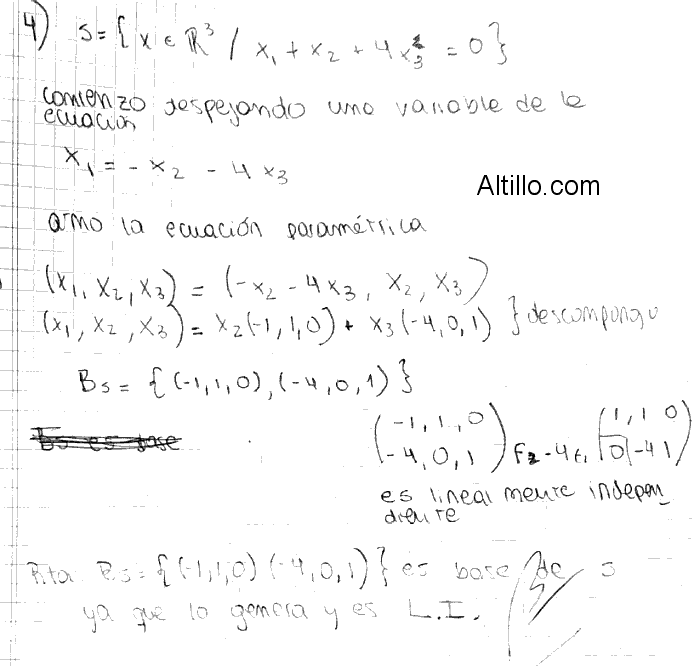 4) S = { x ∈ ℝ³ / x₁ + x₂ + 4x₃ = 0 }
comienzo despejando una variable de la
ecuación
x₁ = - x₂ - 4 x₃
Altillo.com
armo la ecuación paramétrica
(x₁, x₂, x₃) = (-x₂ - 4x₃, x₂, x₃)
(x₁, x₂, x₃) = x₂(-1, 1, 0) + x₃(-4, 0, 1) } descompongo
Bs = { (-1, 1, 0), (-4, 0, 1) }
(-1, 1, 0) (1, 1 0)
(-4, 0, 1) F₂-4F₁ (0 -4 1)
es linealmente indepen
diente
Rta Bs = { (-1, 1, 0) (-4, 0, 1) } es base de S
ya que lo genera y es L.I.